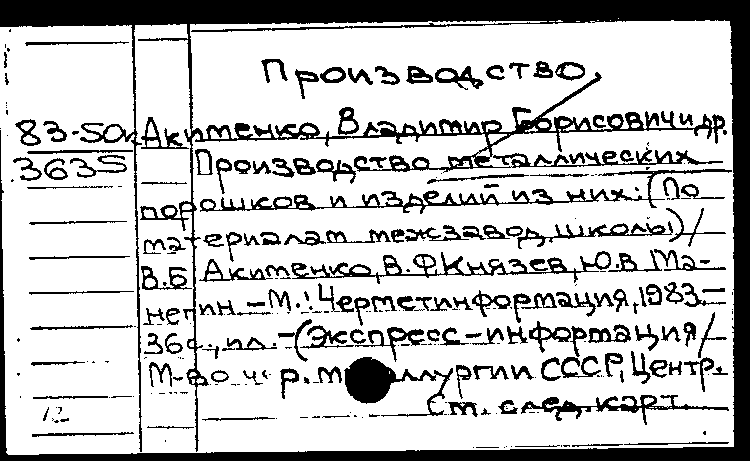 Производство,
83-5ок Акименко, Владимир Борисович и др.
3635 Производство металлических
порошков и изделий из них: (По
материалам межзавод. школы) /
В.Б Акименко, В.Ф Князев, Ю.В Ма-
негин. - М.: Черметинформация, 1983. -
36 с., ил. - (Экспресс-информация /
М-во ч р. металлургии СССР, Центр.
12 См. след. карт.